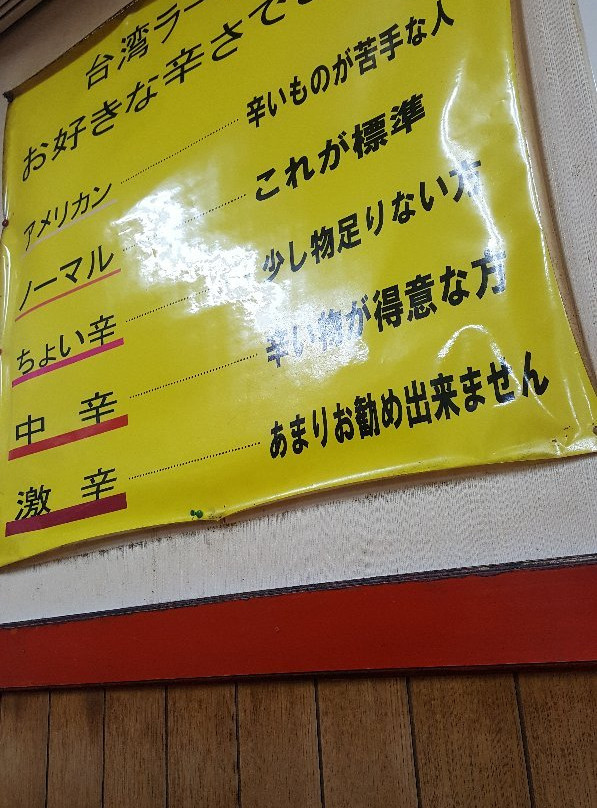 台湾ラー
お好きな辛さで
アメリカン………………辛いものが苦手な人
ノーマル………………これが標準
ちょい辛………………少し物足りない方
中　辛………………辛い物が得意な方
激　辛………………あまりお勧め出来ません